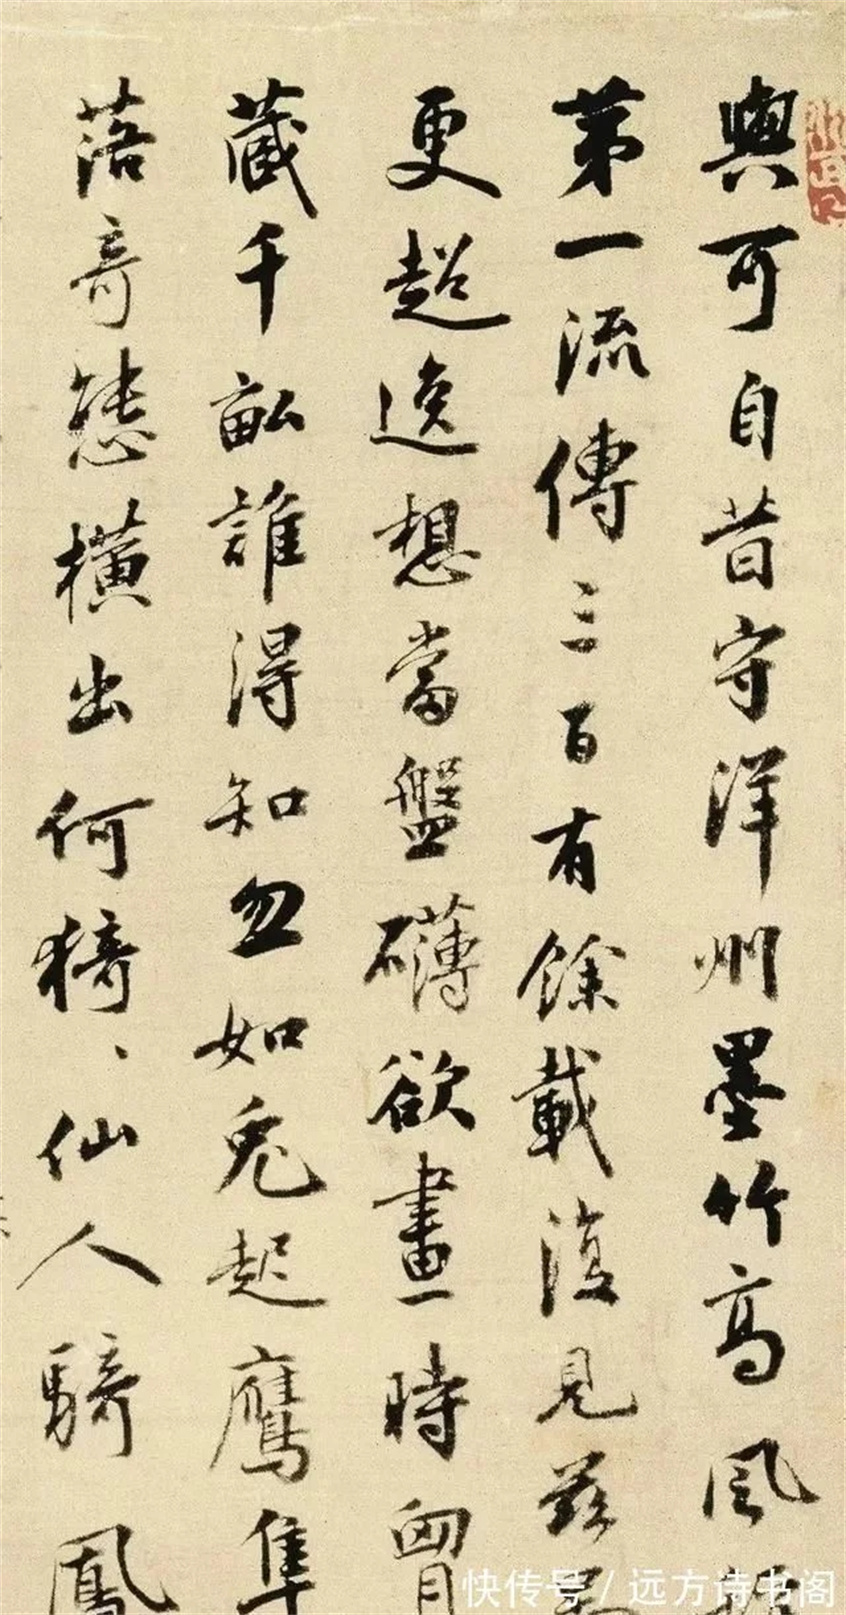 與可自昔守洋州墨竹高風
第一流傳三百有餘載復見茲
更超逸想當盤礴欲畫時胷
藏千畝誰得知忽如兔起鷹隼
落奇態橫出何猗、仙人騎鳳
快传号 / 远方诗书阁